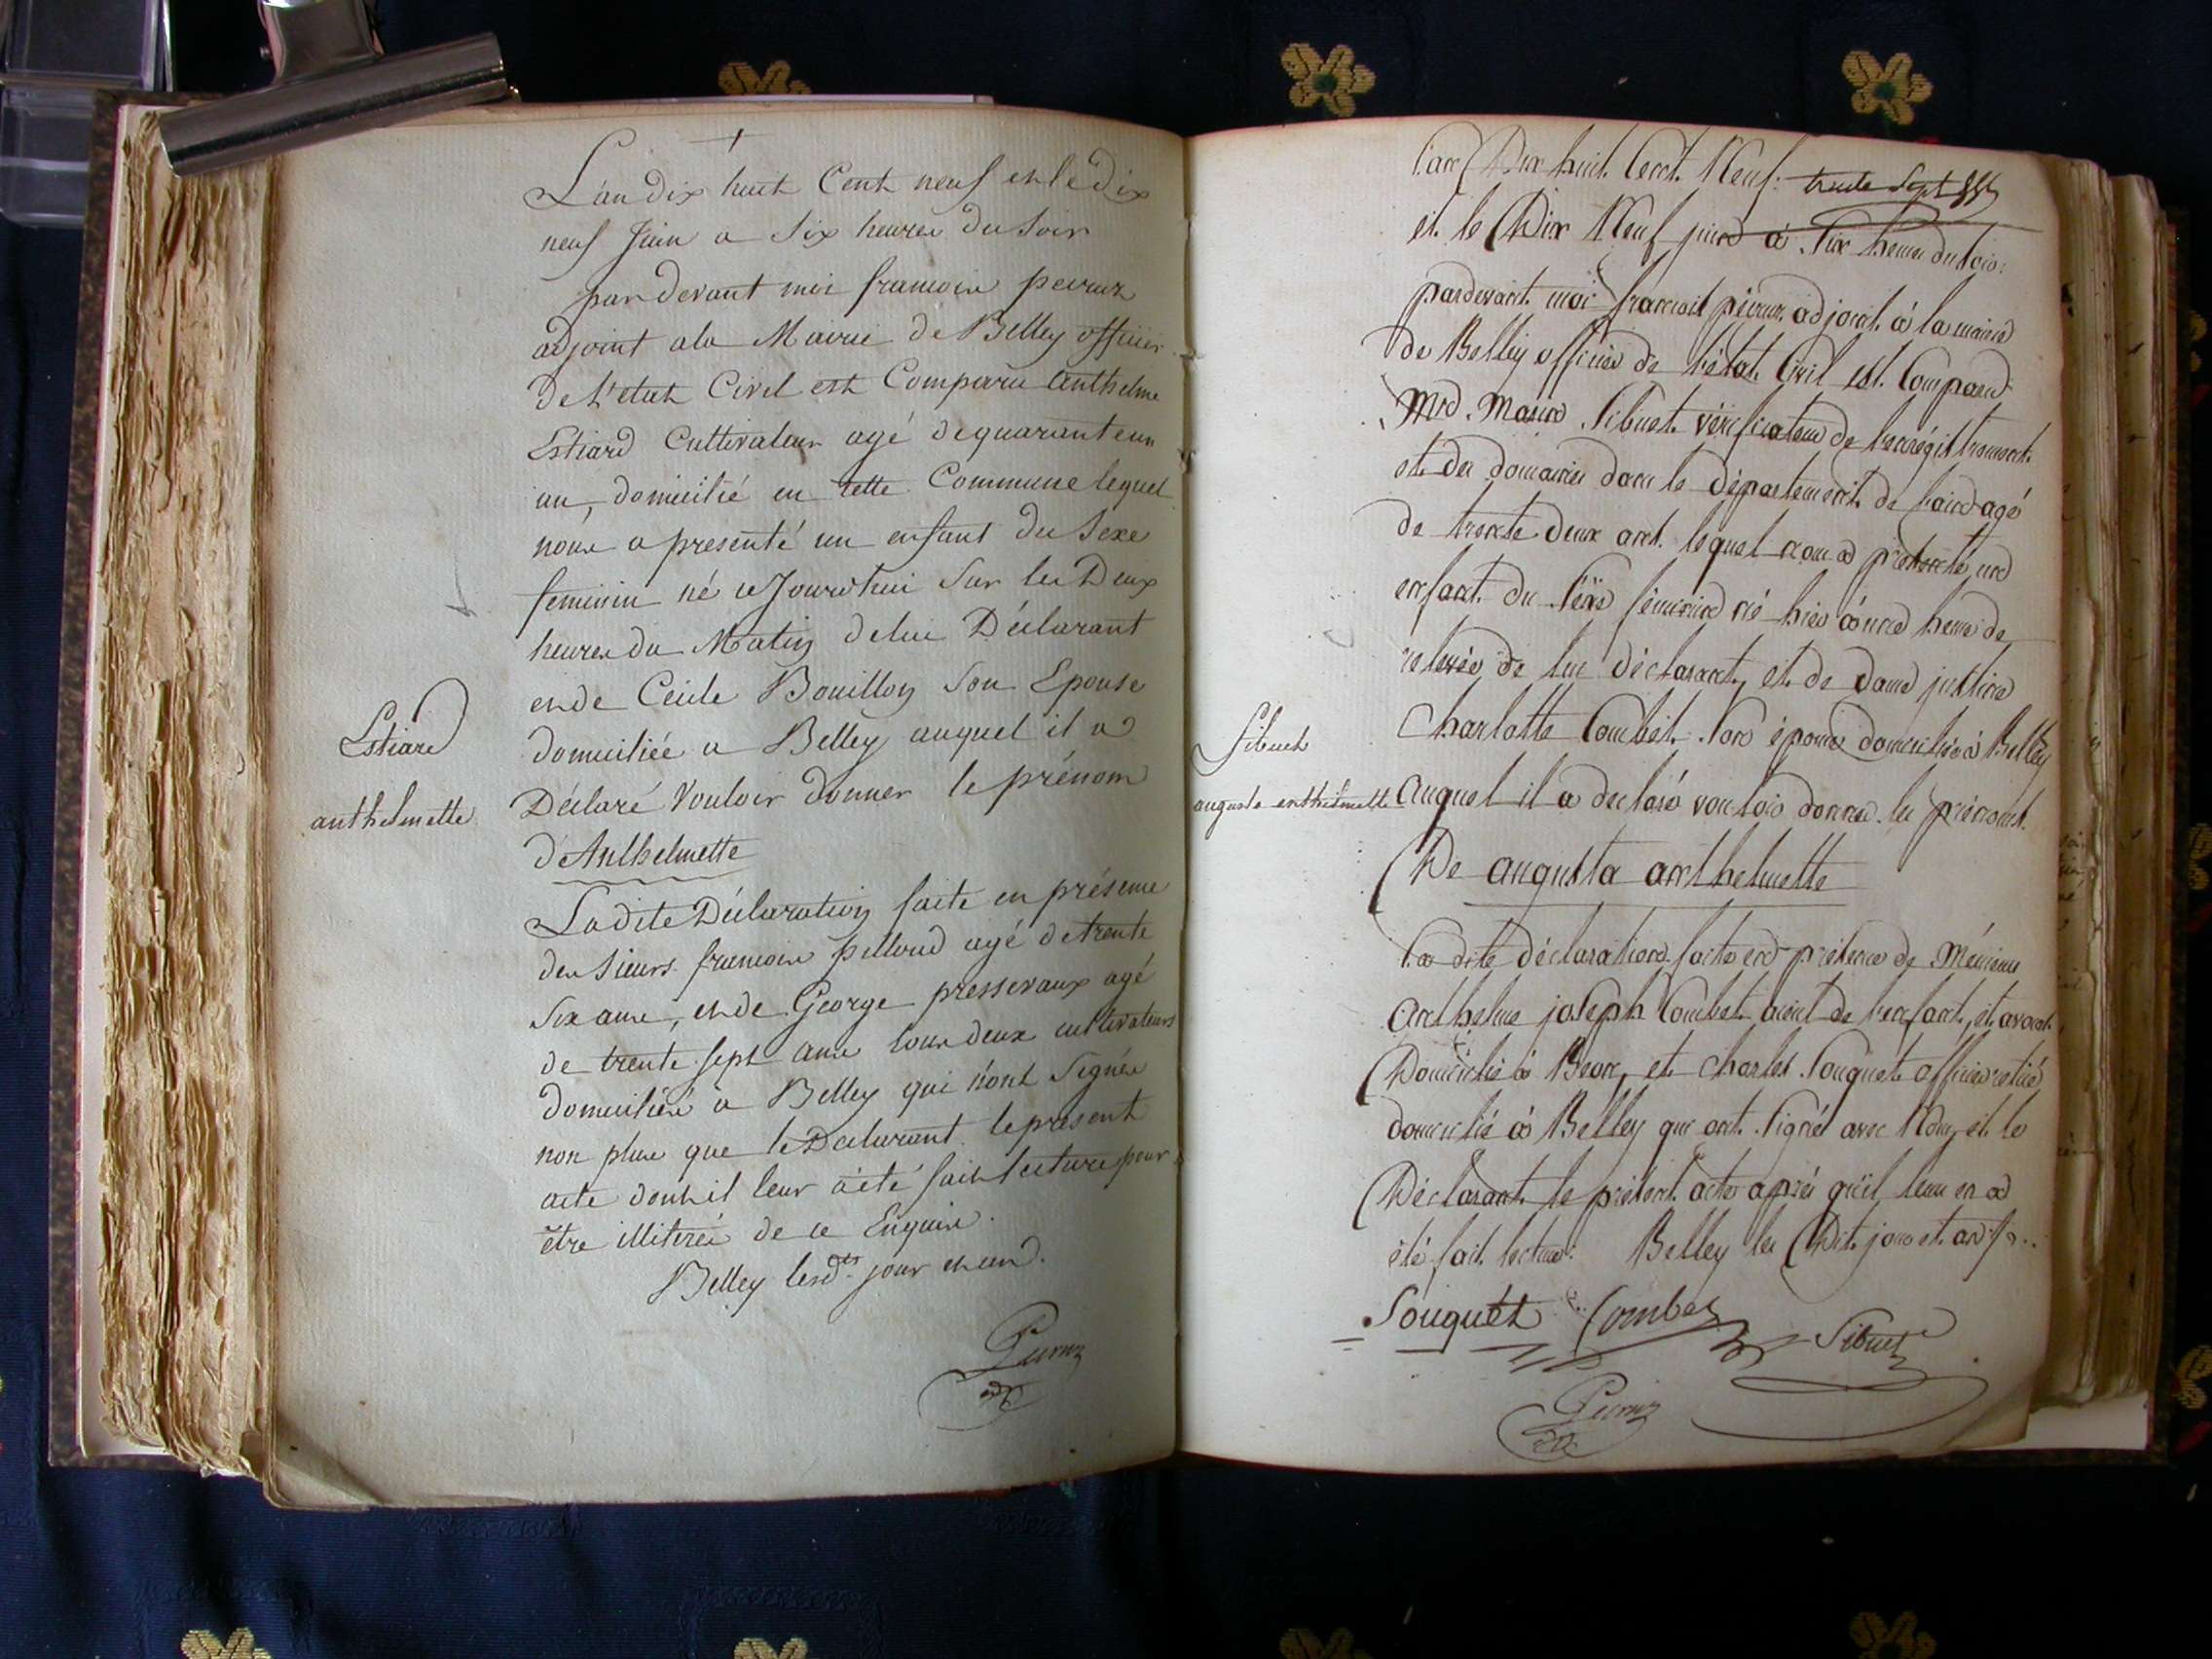 L'an dix huit Cent neuf et le dix
neuf Juin a six heures du soir
par devant moi francois peuruz
adjoint a la Mairie de Belley officier
de l'etat Civil est Comparu Anthelme
Estiard Cultivateur agé de quarante un
an, domicilié en cette Commune lequel
nous a presenté un enfant du Sexe
feminin né ce Jourd'hui Sur les Deux
heures du Matin de lui Déclarant
et de Cécile Bouillon Son Epouse
domiciliée a Belley auquel il a
Déclaré Vouloir donner le prénom
d'Anthelmette
Estiard
anthelmette
La dite Déclaration faite en présence
des Sieurs francois pilloud agé de trente
Six ans, et de George pressevaux agé
de trente Sept ans tous deux cultivateurs
domiciliés a Belley qui n'ont Signés
non plus que le Déclarant le présent
acte dont il leur a été fait lecture pour
être illiterés de ce Enquis.
Belley lesdts jour et an.
Peuruz
adt
trente Sept
L'an Dix huit Cent Neuf
et le Dix Neuf juin à Six heures du soir
pardevant moi francois peuruz adjoint à la mairie
de Belley officier de l'état Civil est Comparu
Mr Marin Sibuet vérificateur de l'enregistrement
et des domaines dans le département de l'ain agé
de trente deux ans lequel nous a présenté un
enfant du Séxe féminin né hier à une heure de
relevée de lui déclarant, et de dame justine
Charlotte Combet Son épouse domiciliée à Belley
auquel il a declaré vouloir donner les prénoms
De augusta anthelmette
Sibuet
augusta anthelmette
La dite déclaration faite en présence de Messieurs
Anthelme joseph Combet aieul de l'enfant, et avocat
Domicilié à Beon, et Charles Souquet officier retiré
domicilié à Belley qui ont Signé avec Nous, et le
Déclarant le présent acte après qu'il leur en a
été fait lecture. Belley les Dit jour et an
Souquet Combet Sibuet
Peuruz
adt